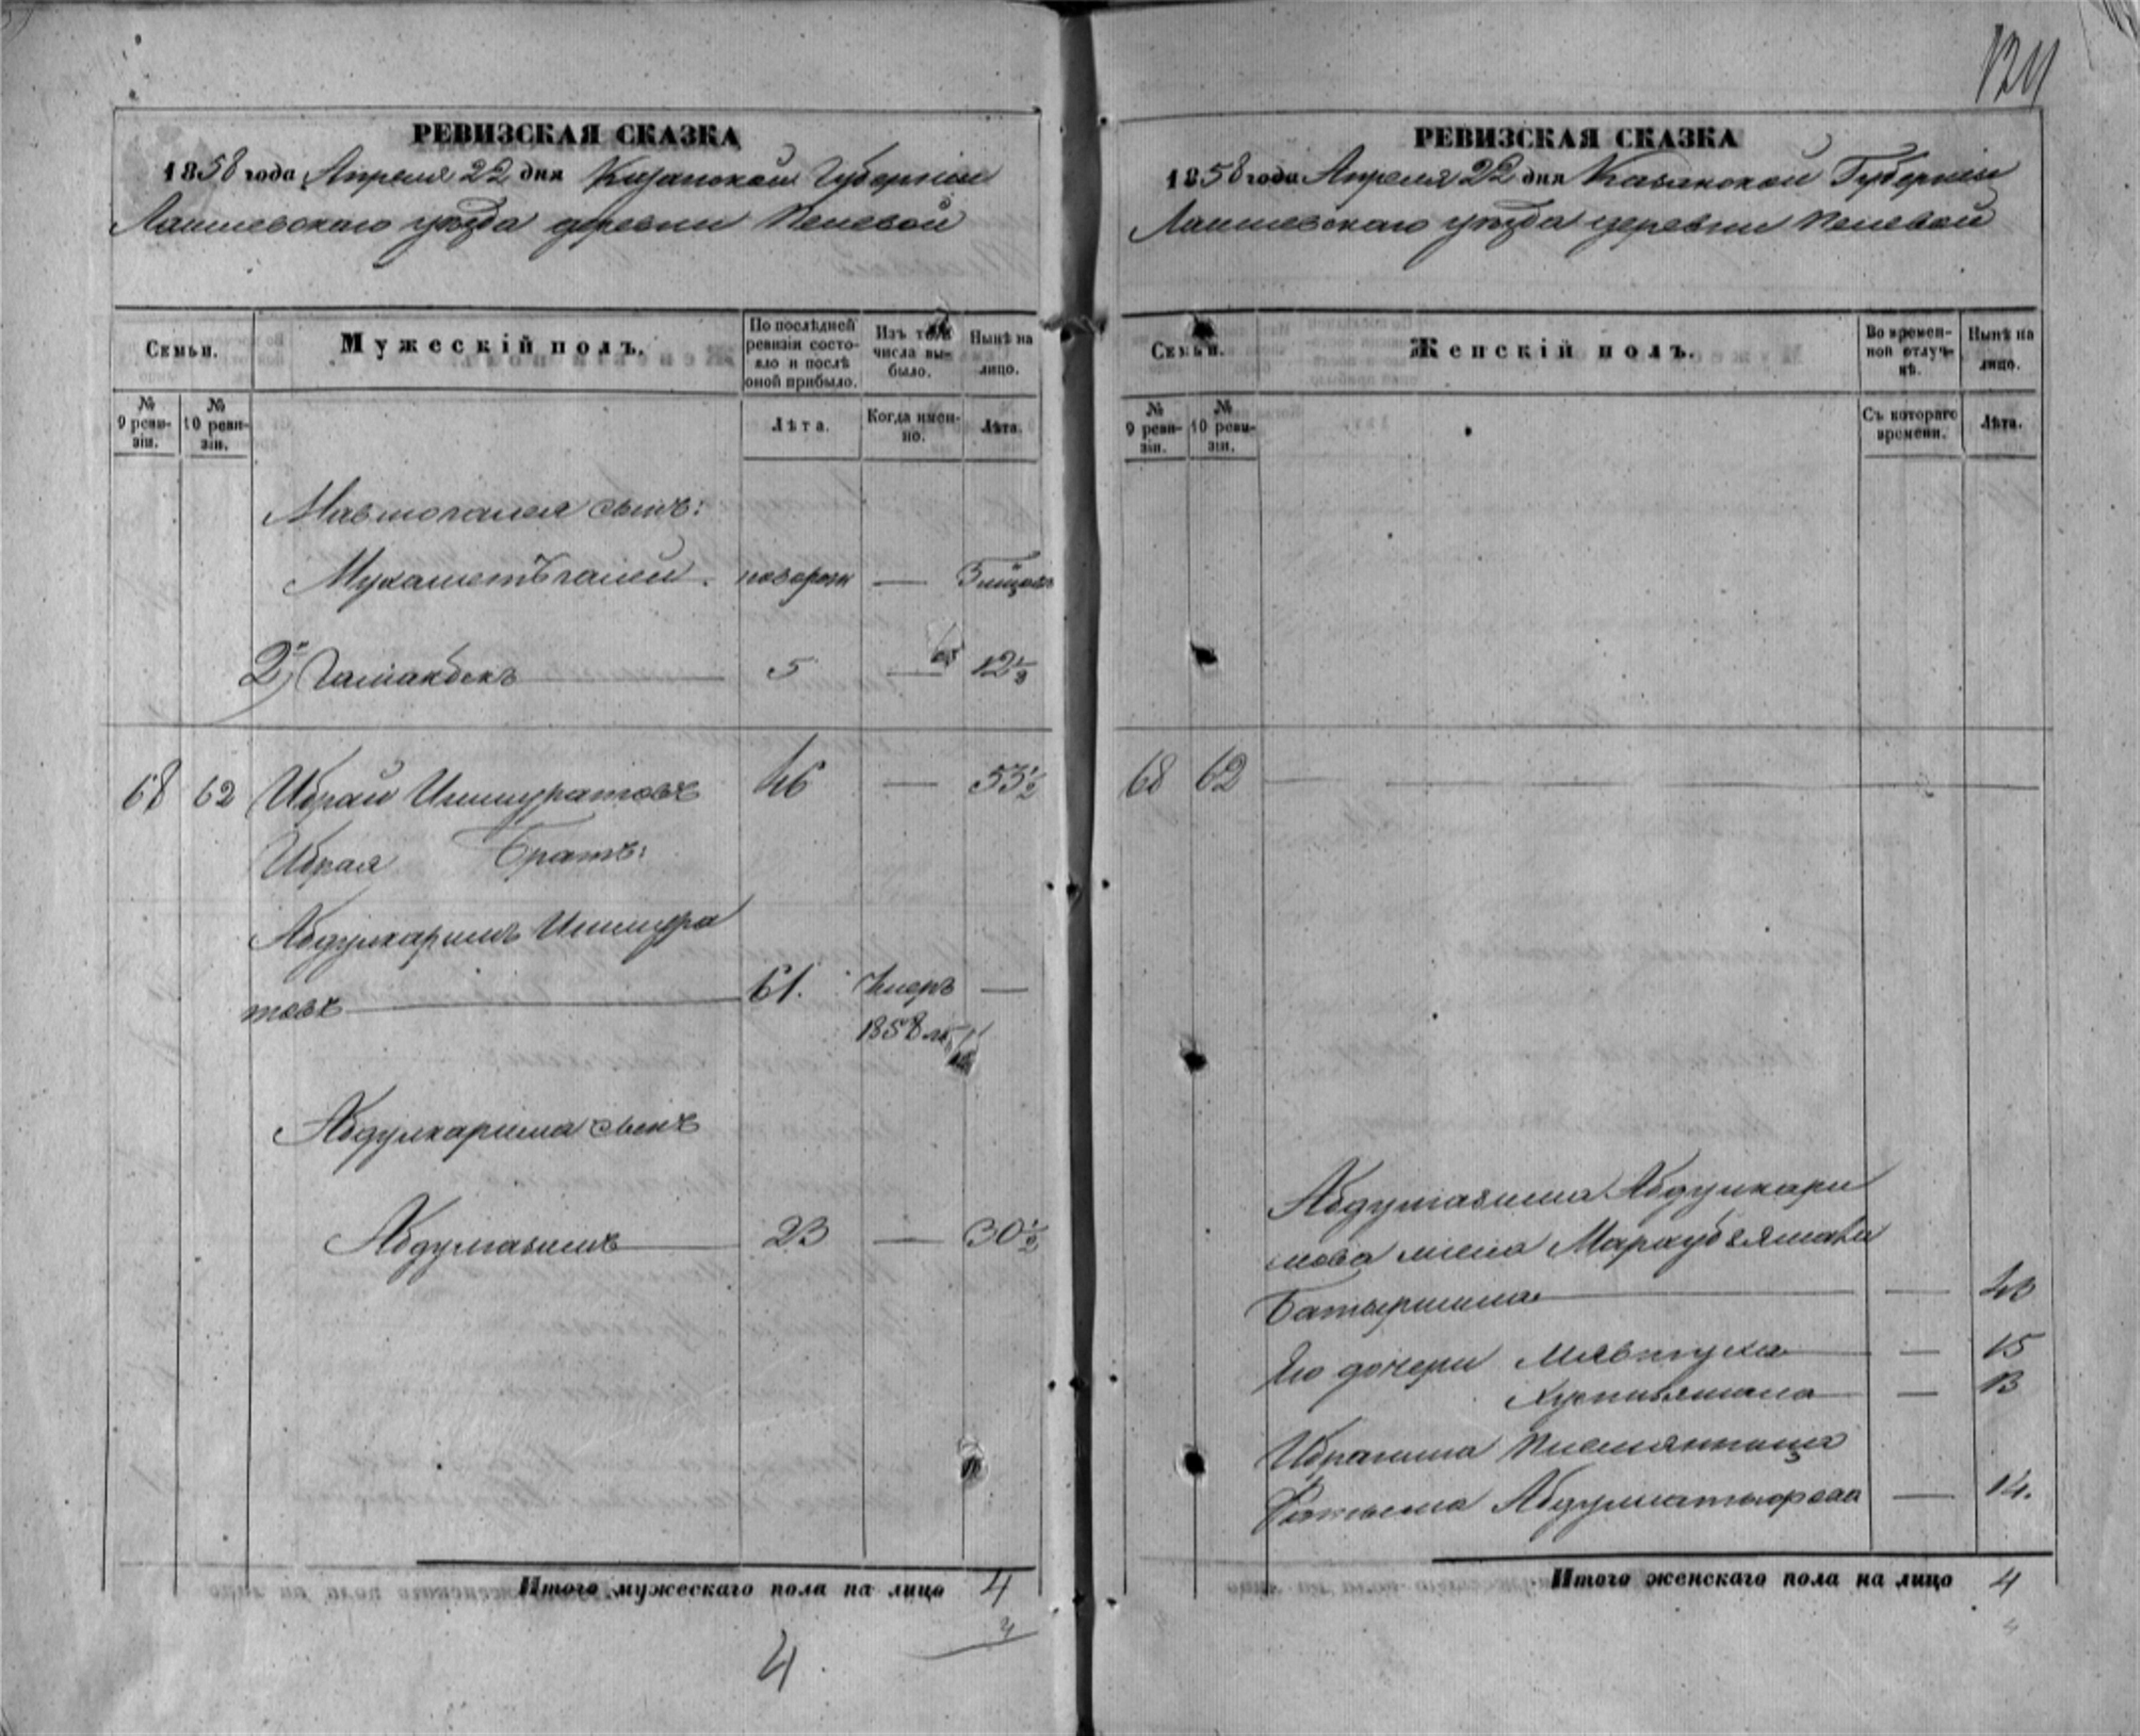 124
РЕВИЗСКАЯ СКАЗКА
1858 года Апреля 22 дня Казанской Губерніи
Лаишевскаго уѣзда деревни Пелевой
Семьи.
Мужескій полъ.
По послѣдней ревизіи состояло и послѣ оной прибыло.
Изъ того числа выбыло.
Нынѣ на лицо.
№ 9 ревизіи.
№ 10 ревизіи.
Лѣта.
Когда именно.
Лѣта.
сынъ:
Мухаметъгалей —
2й 5 — 12½
68 62 Ибрай Ишмуратовъ 46 — 53½
Ибрая Братъ:
Абдулкаримъ Ишмура
товъ 61. Умеръ —
1858
Абдулкарима сынъ
Абдулазимъ 23 — 30½
Итого мужескаго пола на лицо 4
4
4
РЕВИЗСКАЯ СКАЗКА
1858 года Апреля 22 дня Казанской Губерніи
Лаишевскаго уѣзда деревни Пелевой
Семьи.
Женскій полъ.
Во временной отлучкѣ.
Нынѣ на лицо.
№ 9 ревизіи.
№ 10 ревизіи.
Съ котораго времени.
Лѣта.
68 62
Абдулазима Абдулкари
мова жена
Батыршина — 40
Его дочери — 15
— 13
Ибрагима племянница
Фатыма — 14.
Итого женскаго пола на лицо 4
4